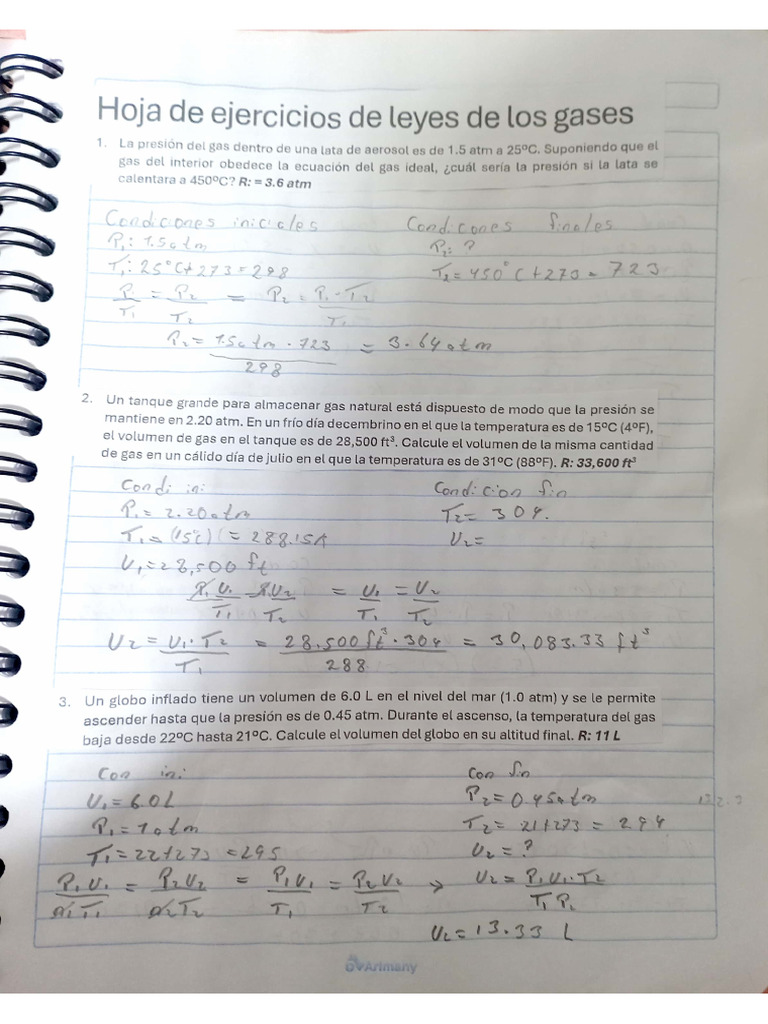 Hoja de ejercicios de leyes de los gases
1. La presión del gas dentro de una lata de aerosol es de 1.5 atm a 25ºC. Suponiendo que el
gas del interior obedece la ecuación del gas ideal, ¿cuál sería la presión si la lata se
calentara a 450ºC? R: = 3.6 atm
Condiciones iniciales Condicones finales
P₁: 1.5atm P₂: ?
T₁: 25°C+273=298 T₂=450°C+273=723
P₁/T₁ = P₂/T₂ = P₂ = P₁·T₂/T₁
P₂ = 1.5atm · 723 / 298 = 3.64atm
2. Un tanque grande para almacenar gas natural está dispuesto de modo que la presión se
mantiene en 2.20 atm. En un frío día decembrino en el que la temperatura es de 15ºC (4ºF),
el volumen de gas en el tanque es de 28,500 ft³. Calcule el volumen de la misma cantidad
de gas en un cálido día de julio en el que la temperatura es de 31ºC (88ºF). R: 33,600 ft³
Condi ini: Condicion fin
P₁= 2.20atm T₂= 304.
T₁= (15°C) = 288.15 V₂=
V₁=28,500 ft
P₁V₁/T₁ = P₂V₂/T₂ = V₁/T₁ = V₂/T₂
V₂ = V₁·T₂/T₁ = 28.500ft³·304/288 = 30,083.33 ft³
3. Un globo inflado tiene un volumen de 6.0 L en el nivel del mar (1.0 atm) y se le permite
ascender hasta que la presión es de 0.45 atm. Durante el ascenso, la temperatura del gas
baja desde 22ºC hasta 21ºC. Calcule el volumen del globo en su altitud final. R: 11 L
Con ini: Con fin
V₁=6.0L P₂=0.45atm
P₁=1atm T₂= 21+273 = 294
T₁=22+273=295 V₂=?
P₁V₁/n₁T₁ = P₂V₂/n₂T₂ = P₁V₁/T₁ = P₂V₂/T₂ → V₂=P₁V₁·T₂/T₁P₂
V₂=13.33 L
Arimany